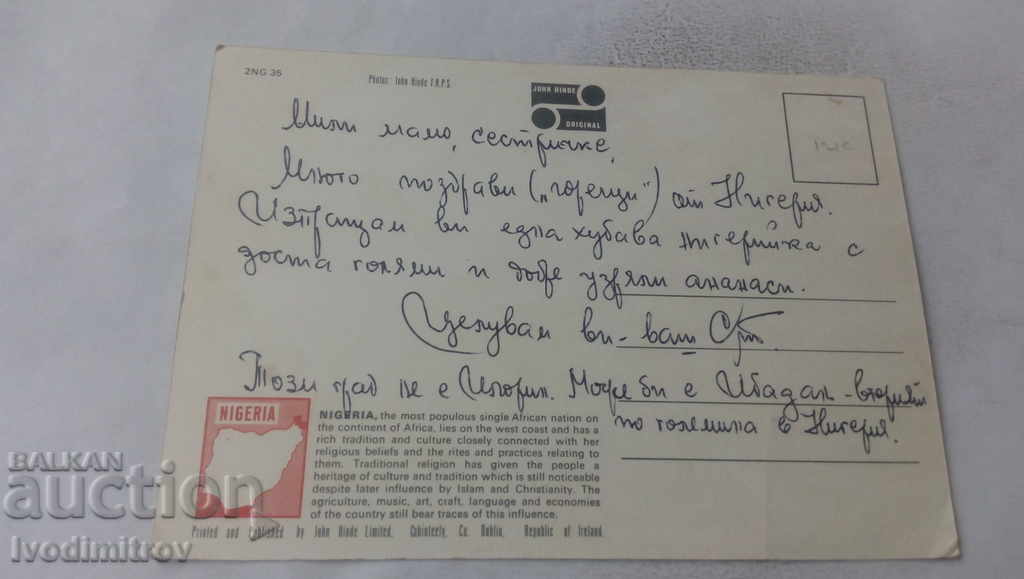 2NG 35
Photos: John Hinde F.R.P.S.
JOHN HINDE
ORIGINAL
Мили мамо, сестричке,
Много поздрави („горещи“) от Нигерия.
Изпращам ви една хубава нигерийка с
доста големи и добре узрели ананаси.
Целувам ви - ваш
Този град не е Илорин. Може би е Ибадан - вторият
по големина в Нигерия.
NIGERIA
NIGERIA, the most populous single African nation on
the continent of Africa, lies on the west coast and has a
rich tradition and culture closely connected with her
religious beliefs and the rites and practices relating to
them. Traditional religion has given the people a
heritage of culture and tradition which is still noticeable
despite later influence by Islam and Christianity. The
agriculture, music, art, craft, language and economies
of the country still bear traces of this influence.
Printed and Published by John Hinde Limited, Cabinteely, Co. Dublin, Republic of Ireland.
BALKAN
auction
Ivodimitrov